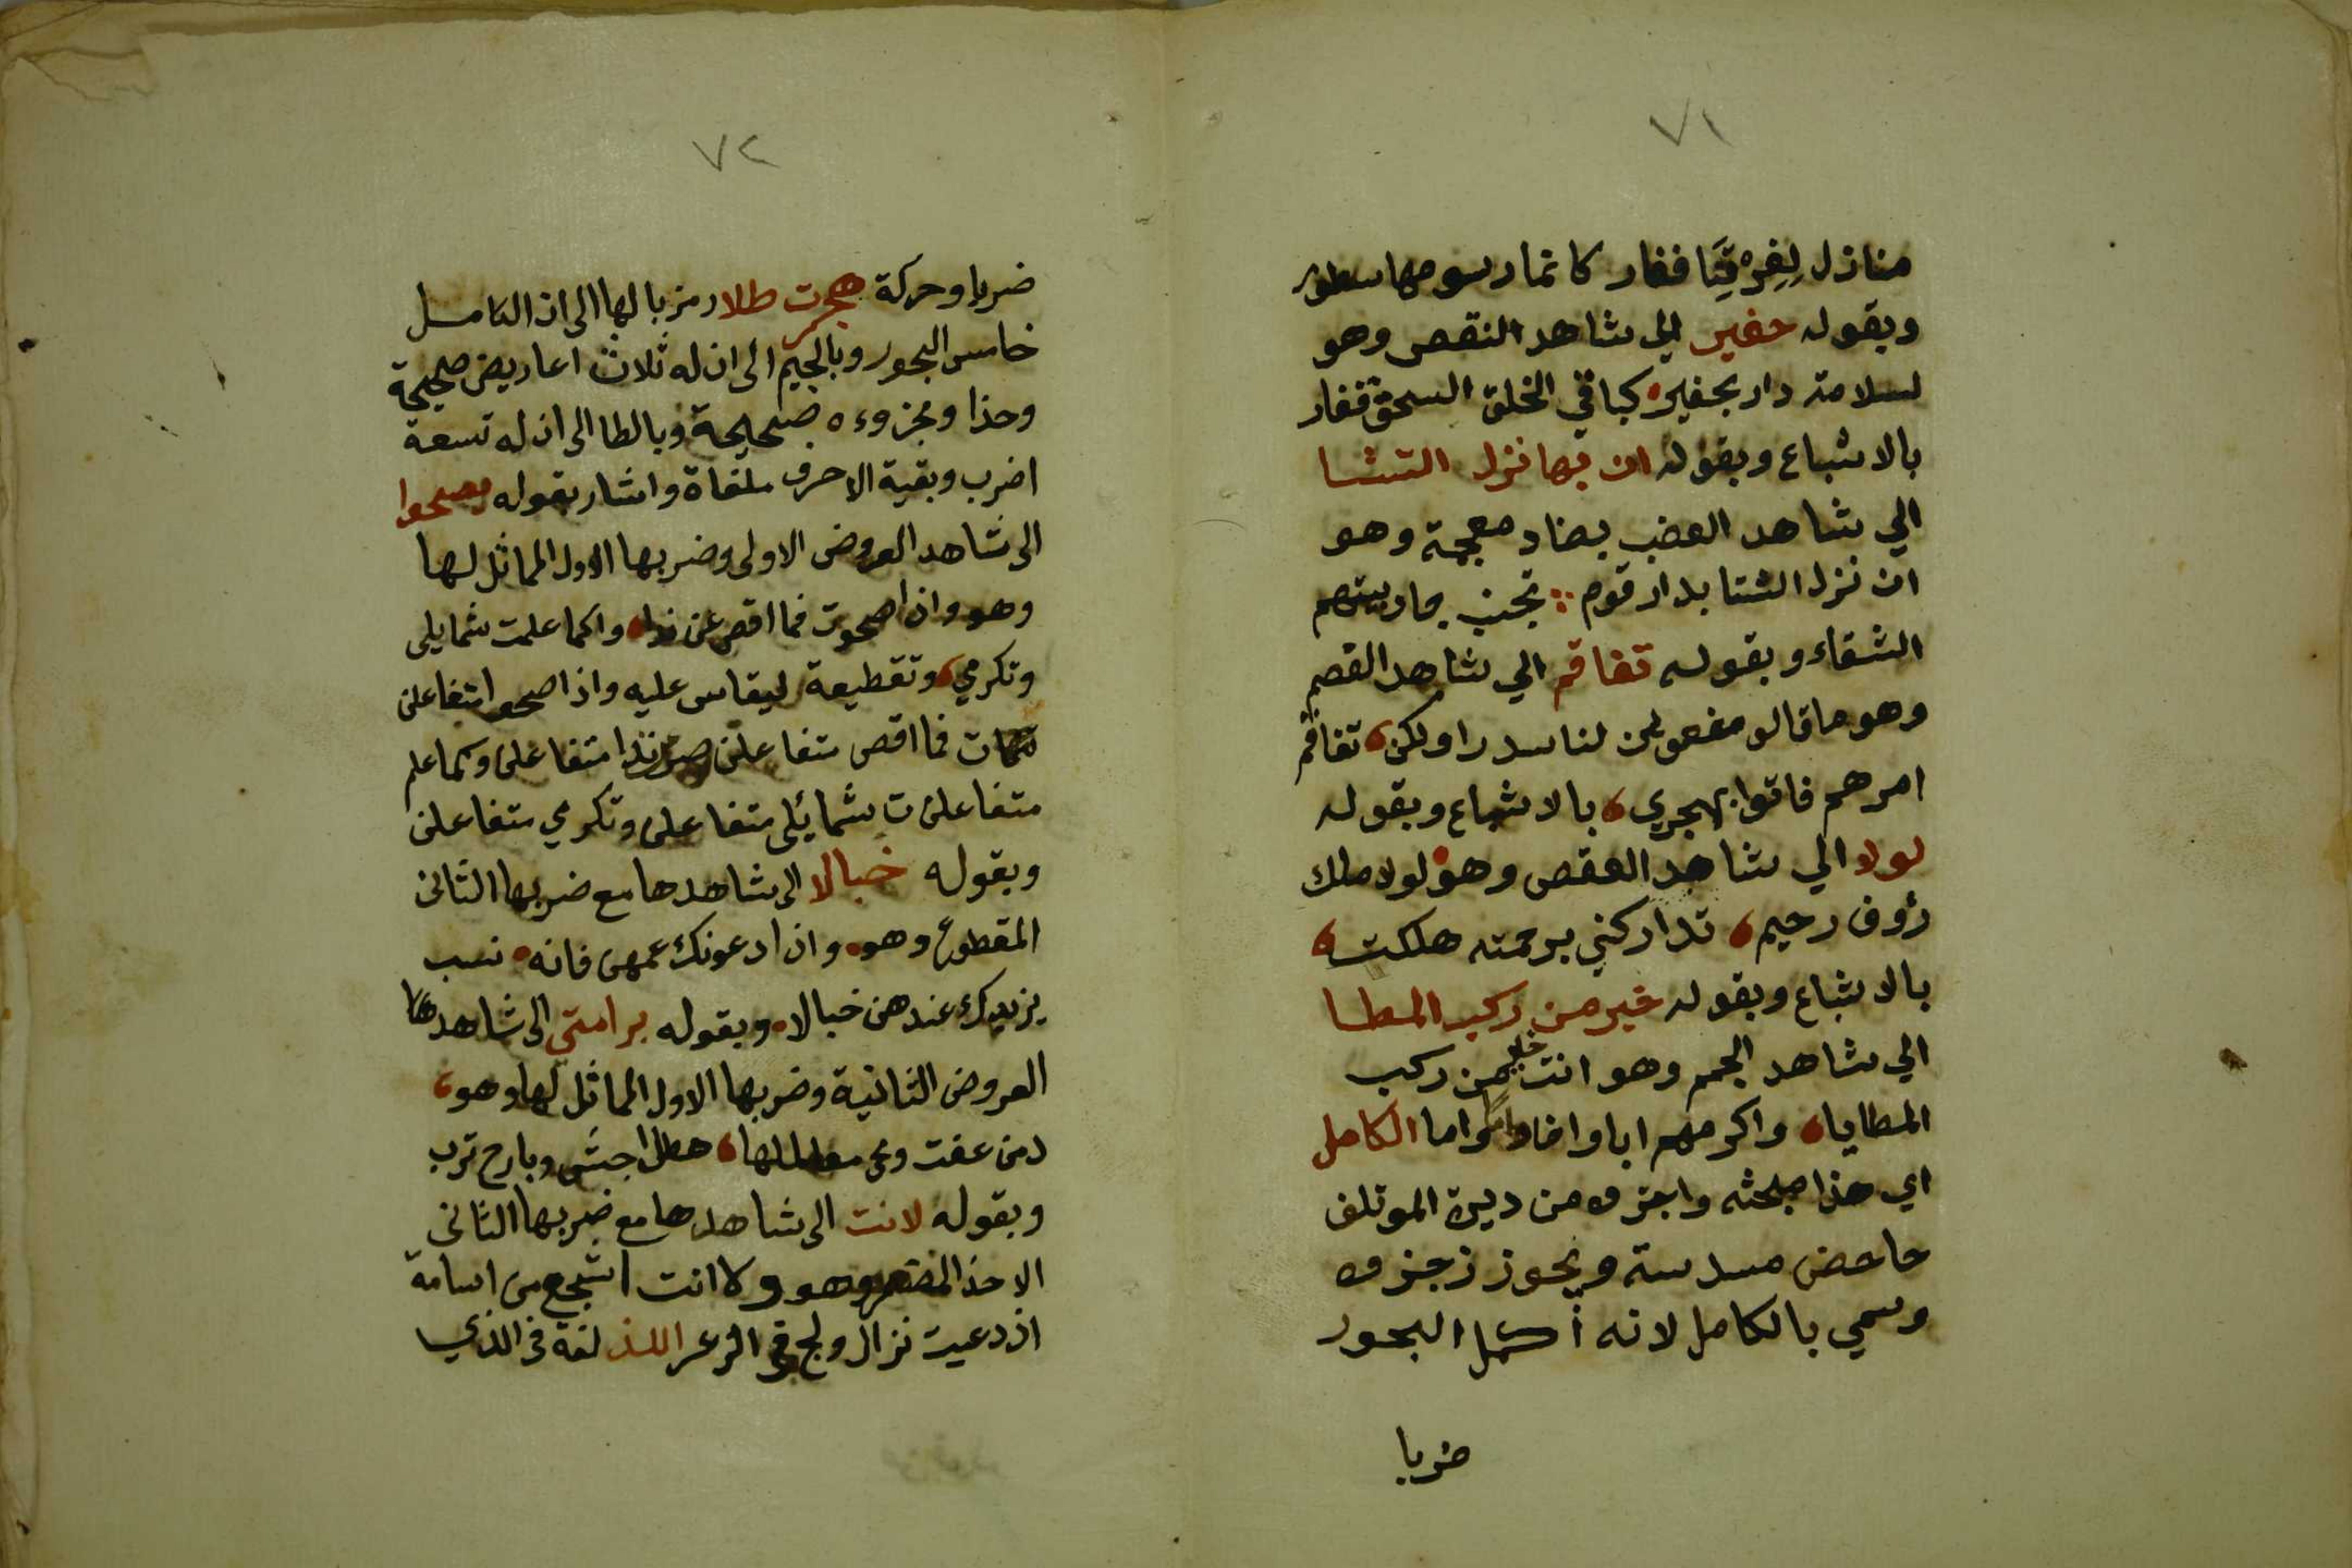 ٧١
منازل لفرتنا قفار كانما رسومها سطور
وبقوله حفير الي شاهد النقص وهو
لسلامة دار بحفيره كباقي الخلق السحق قفار
بالاشباع وبقوله ان بها نزل الشتا
الي شاهد العضب بضاد معجمة وهو
ان نزل الشتا بدار قوم تجنب جار بيتهم
الشتاء وبقوله تفاقم الي شاهد القصم
وهو ما قالو مفعولن لنا سددا ولكن، تفاقم
امرهم فاتوا بهجري، بالاشباع وبقوله
لولا الي شاهد العقص وهو لولا ملك
رؤوف رحيم، تداركني برحمته هلكت،
بالاشباع وبقوله خير من ركب المطا
الي شاهد الجمم وهو انت خير من ركب
المطايا، واكرمهم ابا واخا واما واما الكامل
اي هذا مبحثه واجزوه من ديرة الموتلف
حاحض مسدسة ويجوز زجزوه
وسمي بالكامل لانه أكمل البحور
ضربا
٧٢
ضربا وحركة هجرت طلا رمز بالها الى ان الكامل
خامس البحور وبالجيم الى ان له ثلاث اعاريض صحيحة
وحذا ومجزوءه صحيحة وبالطا الى ان له تسعة
اضرب وبقية الاحرف ملغاة واشار بقوله بصحوا
الى شاهد العروض الاولى وضربها الاول المماثل لها
وهو واذا صحوت فما اقصر عن ندا، وكما علمت شمايلي
وتكرمي، وتقطيعة ليقاس عليه واذا صحو متفاعلن
تكات فما اقص متفاعلن صر ندا متفاعلن وكما علم
متفاعلن ت شمائلي متفاعلن وتكرمي متفاعلن
وبقوله خبالا الى شاهدها مع ضربها الثانى
المقطوع وهو، واذا دعونك عمهن فانه، نسب
يزيدك عندهن خبالا، وبقوله برامتي الى شاهدها
العروض الثانية وضربها الاول المماثل لها وهو،
دمن عفت ومحى معالمها، هطل اجش وبارح ترب
وبقوله لانت الى شاهدها مع ضربها الثانى
الاحذ المضمر وهو ولانت اشجع من اسامة
اذ دعيت نزال ولج في الذعر اللذ لغة في الذي